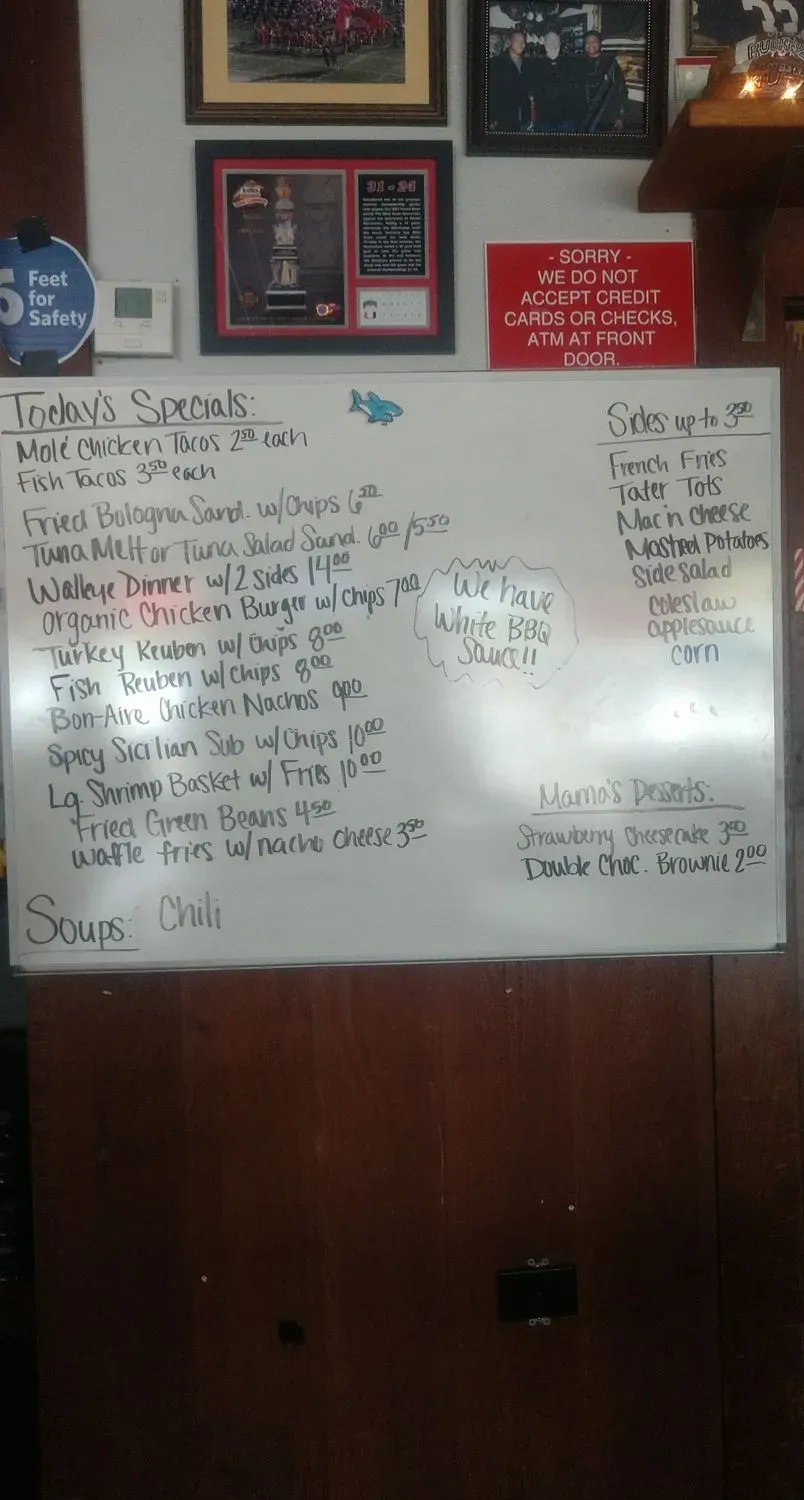 RUCK
31 - 24
6 Feet
for
Safety
- SORRY -
WE DO NOT
ACCEPT CREDIT
CARDS OR CHECKS,
ATM AT FRONT
DOOR.
Today's Specials:
Molé Chicken Tacos 2⁵⁰ each
Fish Tacos 3⁵⁰ each
Fried Bologna Sand. w/Chips
Tuna Melt or Tuna Salad Sand. 6⁰⁰/5⁵⁰
Walleye Dinner w/2 sides 14⁰⁰
Organic Chicken Burger w/Chips 7⁰⁰
Turkey Reuben w/ Chips 8⁰⁰
Fish Reuben w/Chips 8⁰⁰
Bon-Aire Chicken Nachos 9⁰⁰
Spicy Sicilian Sub w/Chips 10⁰⁰
Lg. Shrimp Basket w/ Fries 10⁰⁰
Fried Green Beans 4⁵⁰
Waffle fries w/nacho cheese 3⁵⁰
Soups: Chili
We have
White BBQ
Sauce!!
Sides up to 3⁵⁰
French Fries
Tater Tots
Mac'n cheese
Mashed Potatoes
Side salad
coleslaw
applesauce
corn
Mama's Desserts:
Strawberry Cheesecake
Double Choc. Brownie 2⁰⁰